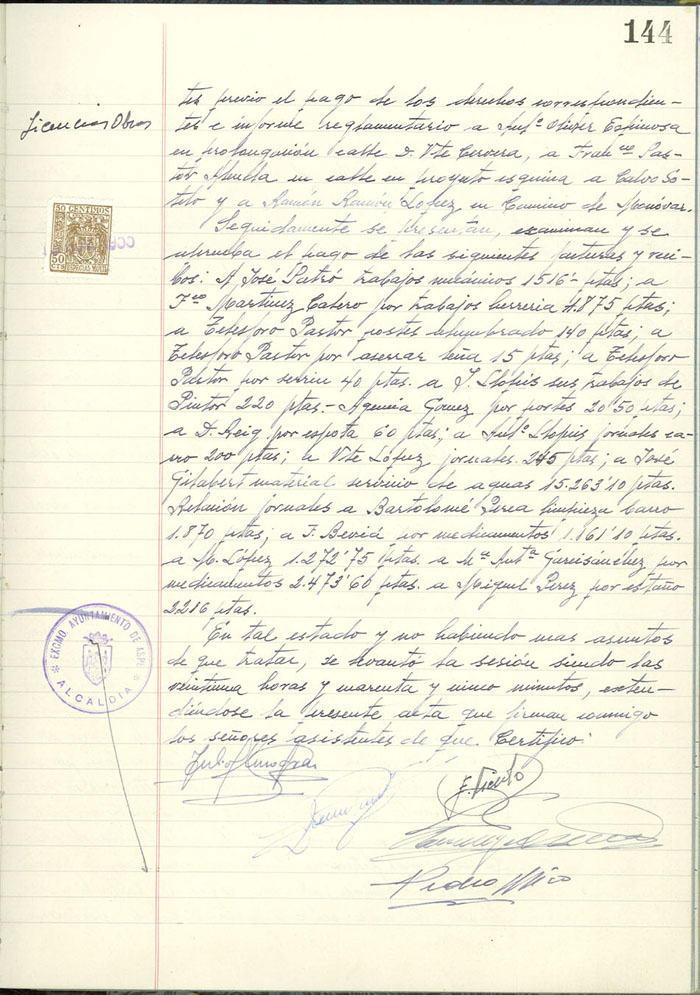 144
tes previo el pago de los derechos correspondien-
Licencias Obras
tes e informe reglamentario a Antº Espinosa
en prolongación calle D. Vte Cervera, a Franco Pas-
tor en calle en proyecto esquina a Calvo So-
telo y a Ramón Ramón López en Camino de Monóvar.
50 CENTIMOS
50 CTS
ESPECIAL MOVIL
Seguidamente se presentan, examinan y se
aprueba el pago de las siguientes facturas y reci-
bos: A José trabajos mecánicos 1516'- ptas; a
Fco Martínez Calero por trabajos herreria 4.875 ptas;
a Telesforo Pastor postes alumbrado 140 ptas; a
Telesforo Pastor por aserrar leña 15 ptas; a Telesforo
Pastor por serrin 40 ptas. a J. Llopis sus trabajos de
Pintor 220 ptas.- Agencia Gomez por portes 20'50 ptas;
a D. Reig por 60 ptas; a Antº Llopis jornales ca-
rro 200 ptas; a Vte López jornales 245 ptas; a José
Gilabert material servicio de aguas 15.263'10 ptas.
Relación jornales a Bartolomé Perea limpieza barro
1.870 ptas; a F. Beviá por medicamentos 1.861'10 ptas.
a M. López 1.272'75 ptas. a Mª Antª Garcisánchez por
medicamentos 2.473'60 ptas. a Miguel Perez por estaño
2216 ptas.
EXCMO. AYUNTAMIENTO DE ASPE
ALCALDIA
En tal estado y no habiendo mas asuntos
de que tratar, se levantó la sesión siendo las
veintiuna horas y cuarenta y cinco minutos, exten-
diéndose la presente acta que firman conmigo
los señores asistentes de que. Certifico:
Pedro